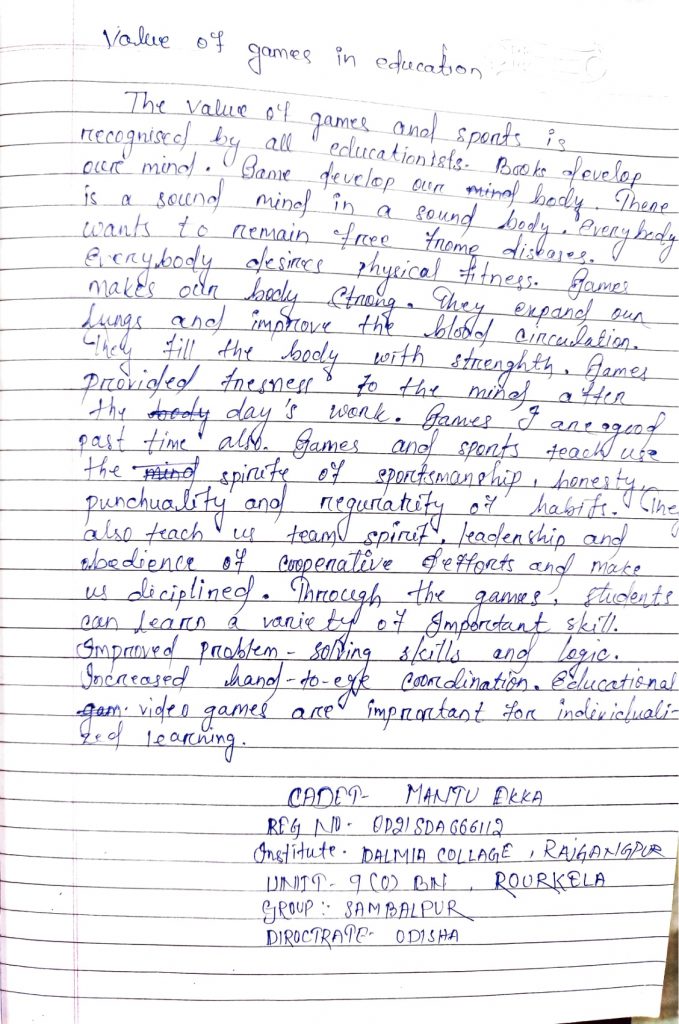 Value of games in education
The value of games and sports is
recognised by all educationists. Books develop
our mind. Game develop our mind body. There
is a sound mind in a sound body. Everybody
wants to remain free frome diseases.
Everybody desires physical fitness. Games
makes our body strong. They expand our
lungs and improve the blood circulation.
They fill the body with strenghth. Games
provided fresness to the mind after
the body day's work. Games I are good
past time also. Games and sports teach use
the mind spirite of sportsmanship, honesty,
punchuality and regurarity of habits. The
also teach us team spirit, leadership and
obedience of cooperative efforts and make
us diciplined. Through the games, students
can learn a variety of Important skill.
Improved problem-solving skills and logic.
Increased hand-to-eye coordination. Educational
gam. video games are imprortant for individuali-
zed learning.
CADET- MANTU EKKA
REG NO- OD21SDA666112
Institute- DALMIA COLLAGE, RAJGANGPUR
UNIT- 9(O) BN, ROURKELA
GROUP:- SAMBALPUR
DIROCTRATE- ODISHA